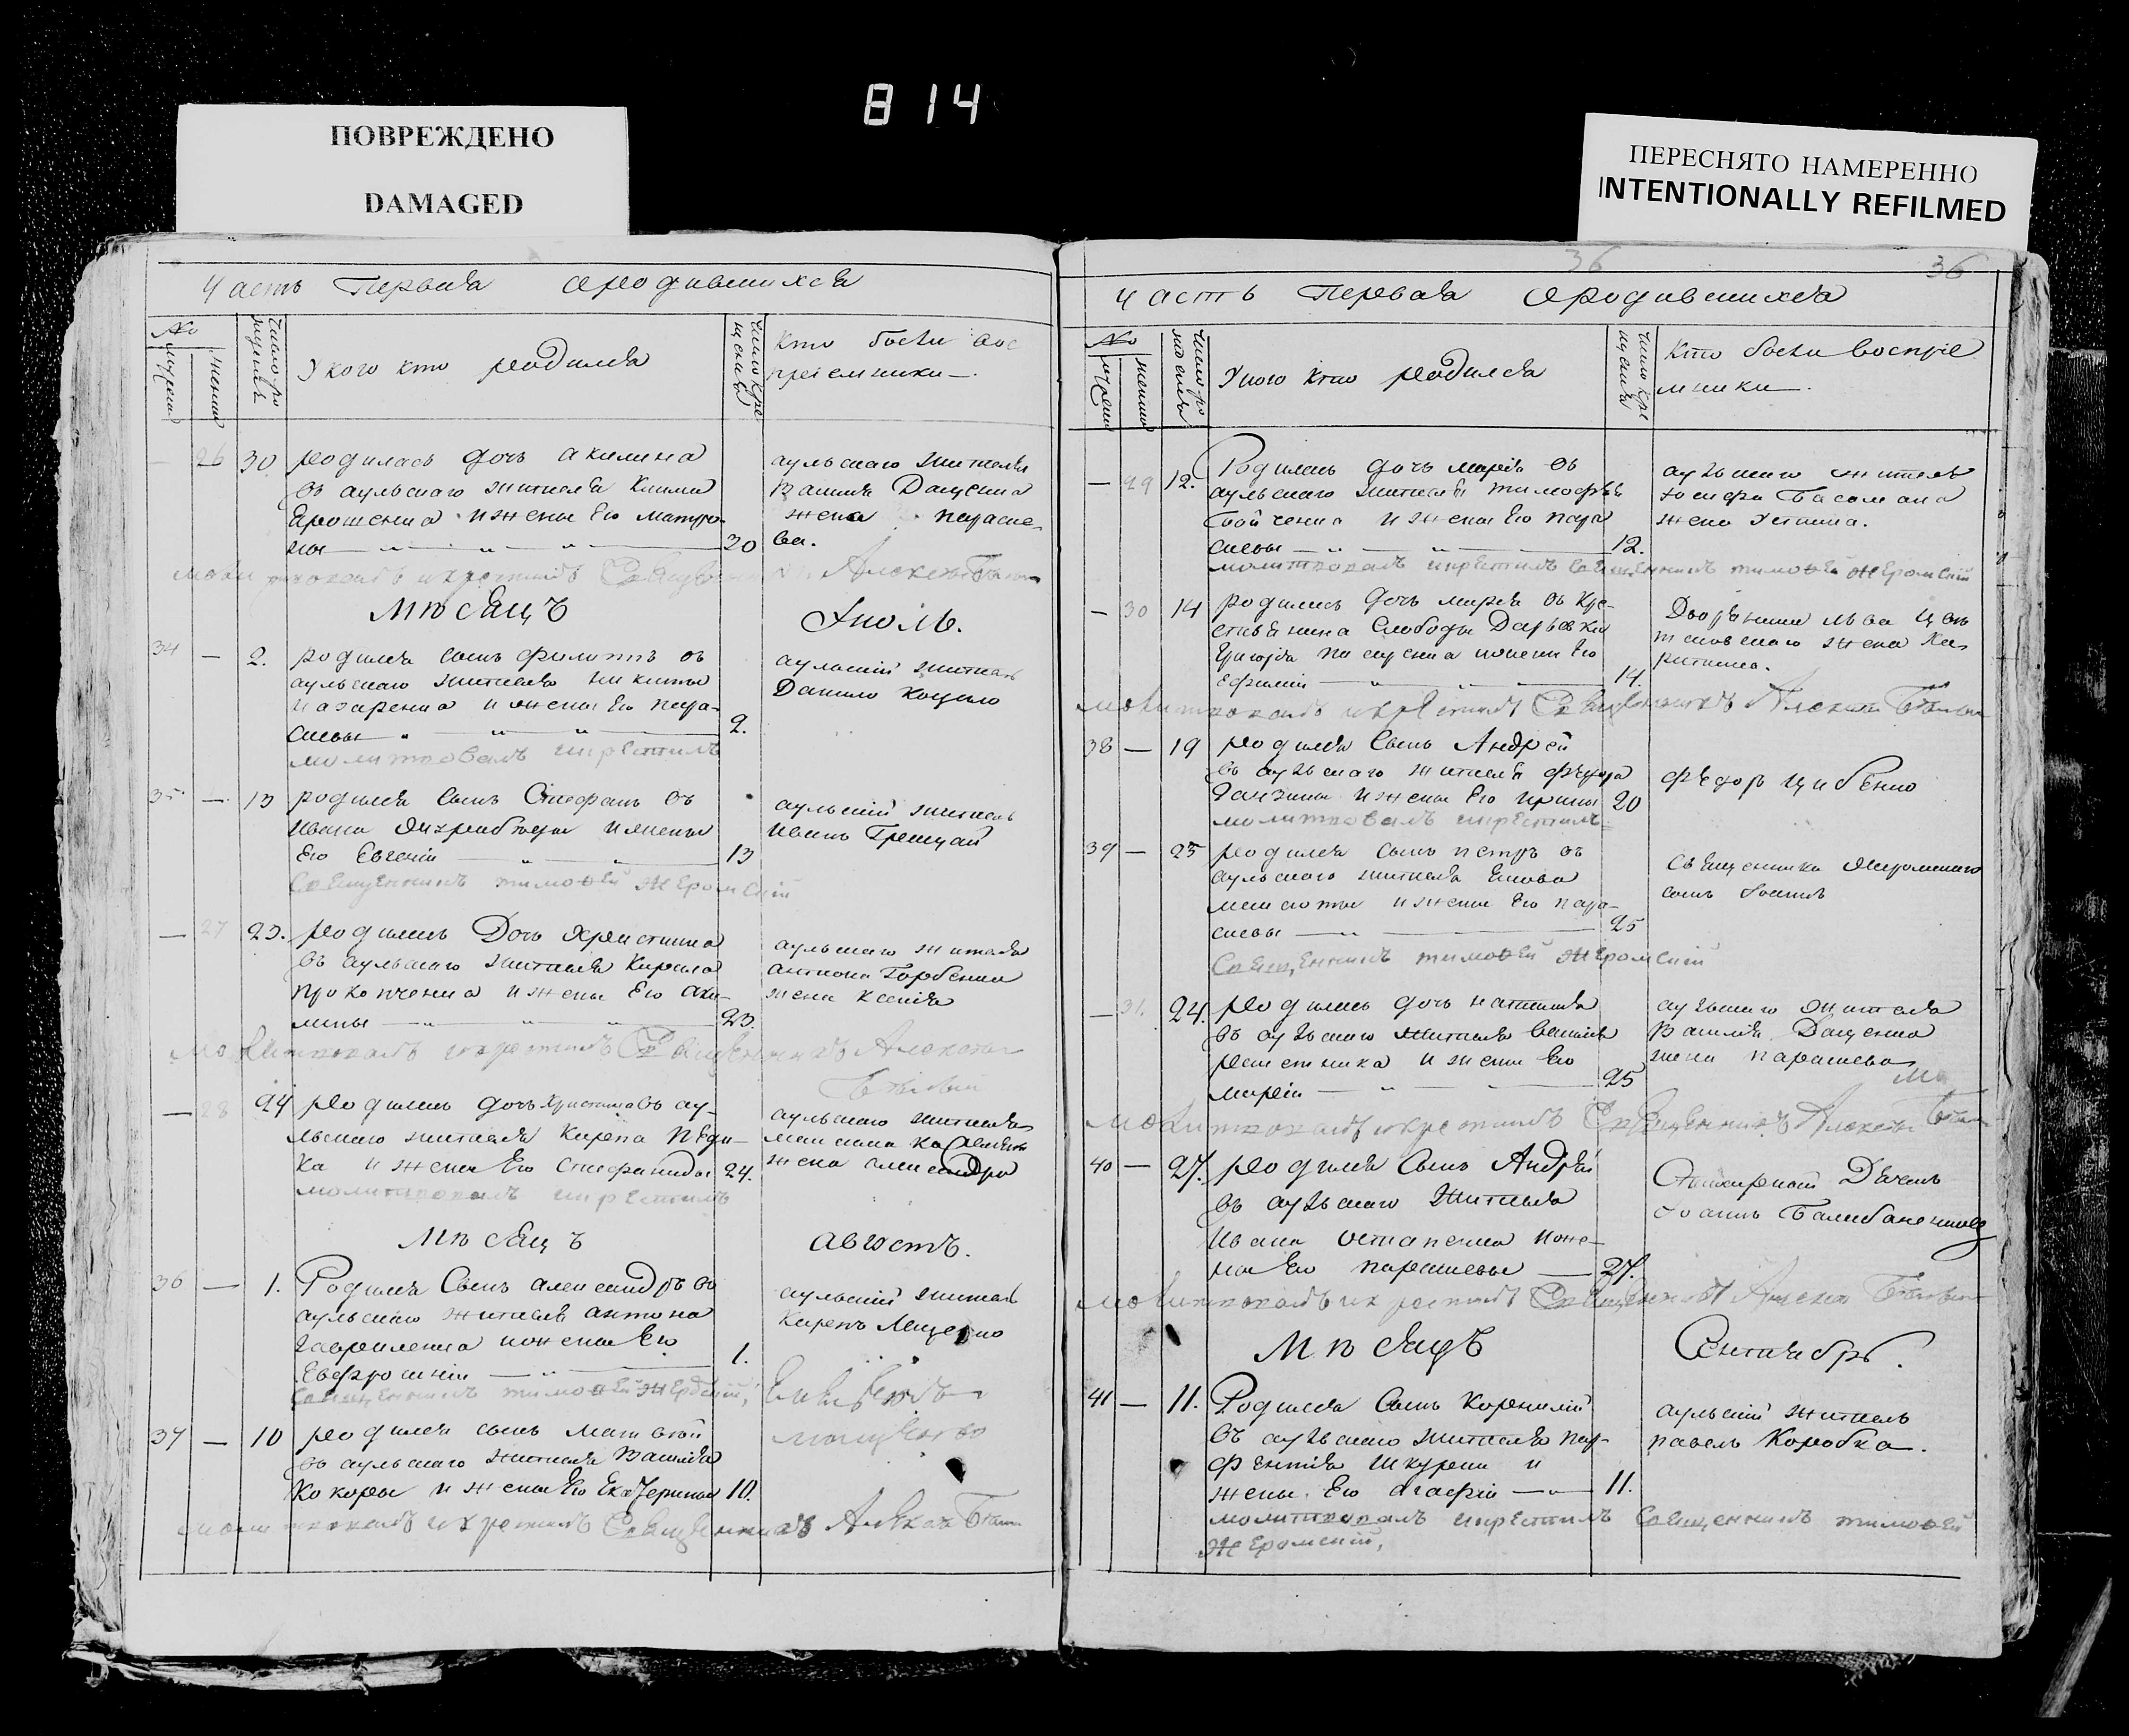 814
ПОВРЕЖДЕНО
DAMAGED
ПЕРЕСНЯТО НАМЕРЕННО
INTENTIONALLY REFILMED
Часть Первая ородившихся
№
мужеска
женска
Число рождения
У кого кто родился
Число крещения
Кто были вос
пріемники
26 30 родилась дочь акилина
въ аульскаго жителя Клима
Ярошенка и жены Его матро-
ны 20
аульскаго жителя
Василя Даценка
жена параске-
ва.
молитвовалъ и крестилъ Священникъ Алексей
Мѣсяцъ Іюль.
34 — 2. родился сынъ филиппъ въ
аульскаго жителя никиты
назаренка и жены Его пара-
скевы 2.
аульскій житель
Данило Коцюло
молитвовалъ и крестилъ
35 — 13 родился сынъ Стефанъ въ
Ивана и жены
Его Евгеніи 13
аульскій житель
Иванъ Грецкай
Священникъ тимоѳей Жеромскій
— 27 23. родилась Дочь Христина
въ аульскаго жителя Кирила
Прокопченка и жены Его аки-
лины 23.
аульскаго жителя
антона Горбенка
жена Ксенія
молитвовалъ и крестилъ Священникъ Алексей
— 28 24 родилась дочь Христина въ ау-
льскаго жителя Карпа
ка и жены Его Стефаниды 24.
аульскаго жителя
жена александра
молитвовалъ и крестилъ
Мѣсяцъ августъ.
36 — 1. Родился Сынъ александръ въ
аульскаго жителя антона
гавриленка и жены Его
Евфросиніи 1.
аульскій житель
Карпъ Яценко
Священникъ тимоѳей Жеромскій,
37 — 10 родился сынъ Матвѣй
въ аульскаго жителя Василія
Кокоры и жены Его Екатерины 10.
молитвовалъ и крестилъ Священникъ Алексей
36
36
Часть первая ородившихся
№
мужеска
женска
Число рождения
У кого кто родился
Число крещения
Кто были воспріе
мники
— 29 12. Родилась дочь марія въ
аульскаго жителя тимофѣя
Бойченка и жены Его пара
скевы 12.
аульскаго жителя
Іосифа Басомана
жена Устина.
молитвовалъ и крестилъ Священникъ тимоѳей Жеромскій
— 30 14 родилась дочь марія въ кре-
стьянина Слободы Дарьевки
Григорія и жены Его
Ефиміи 14.
Дворянина Льва Цви
тковскаго жена Ха
ритина.
молитвовалъ и крестилъ Священникъ Алексей
38 — 19 родился Сынъ Андрей
въ аульскаго жителя Федора
Ганзина и жены Его ирины 20
Федоръ Цибенко
молитвовалъ и крестилъ
39 — 25 родился сынъ петръ въ
аульскаго жителя Якова
и жены Его пара-
скевы 25
Священника Жеромскаго
сынъ Іоаннъ
Священникъ тимоѳей Жеромскій
— 31. 24. родилась дочь наталия
въ аульскаго жителя василія
решетника и жены Его
маріи 25
аульскаго жителя
Василя Даценка
жена параскева
молитвовалъ и крестилъ Священникъ Алексей
40 — 27. родился Сынъ Андрѣй
въ аульскаго жителя
Ивана Остапенка и же-
ны Его параскевы 27.
Дьячекъ
Іоаннъ
молитвовалъ и крестилъ Священникъ Алексей
Мѣсяцъ Сентябрь.
41 — 11. Родился Сынъ Корнилій
въ аульскаго жителя пар-
фентія Шкурки и
жены Его агафіи 11.
аульскій житель
павелъ Коробка.
молитвовалъ и крестилъ Священникъ тимоѳей
Жеромскій,